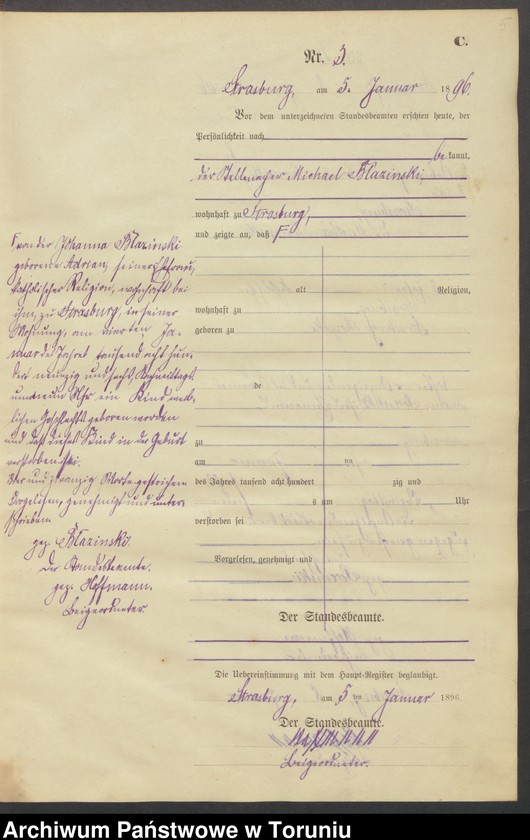 C.
Nr. 3.
Strasburg, am 5. Januar 1896.
Vor dem unterzeichneten Standesbeamten erschien heute, der
Persönlichkeit nach
bekannt,
der Stellmacher Michael Blazinski,
wohnhaft zu Strasburg,
und zeigte an, daß F
F von der Johanna Blazinski
geborene Adrian, seiner Ehefrau,
katholischer Religion, wohnhaft bei
ihm, zu Strasburg, in seiner
Wohnung, am vierten Ja-
nuar des Jahres tausend acht hun-
dert neunzig und sechs, Nachmittags
um neun Uhr ein Kind weib-
lichen Geschlechts geboren worden
und daß dieses Kind in der Geburt
verstorben sei.
und zwanzig Worte gestrichen.
Vorgelesen, genehmigt und unter-
schrieben
gez. Blazinski.
Der Standesbeamte.
gez. Hoffmann.
Beigeordneter.
alt Religion,
wohnhaft zu
geboren zu
de
zu
am ten
des Jahres tausend acht hundert zig und
s um Uhr
verstorben sei
Vorgelesen, genehmigt und
Der Standesbeamte.
Die Uebereinstimmung mit dem Haupt-Register beglaubigt.
Strasburg, am 5 ten Januar 1896
Der Standesbeamte.
Beigeordneter.
Archiwum Państwowe w Toruniu